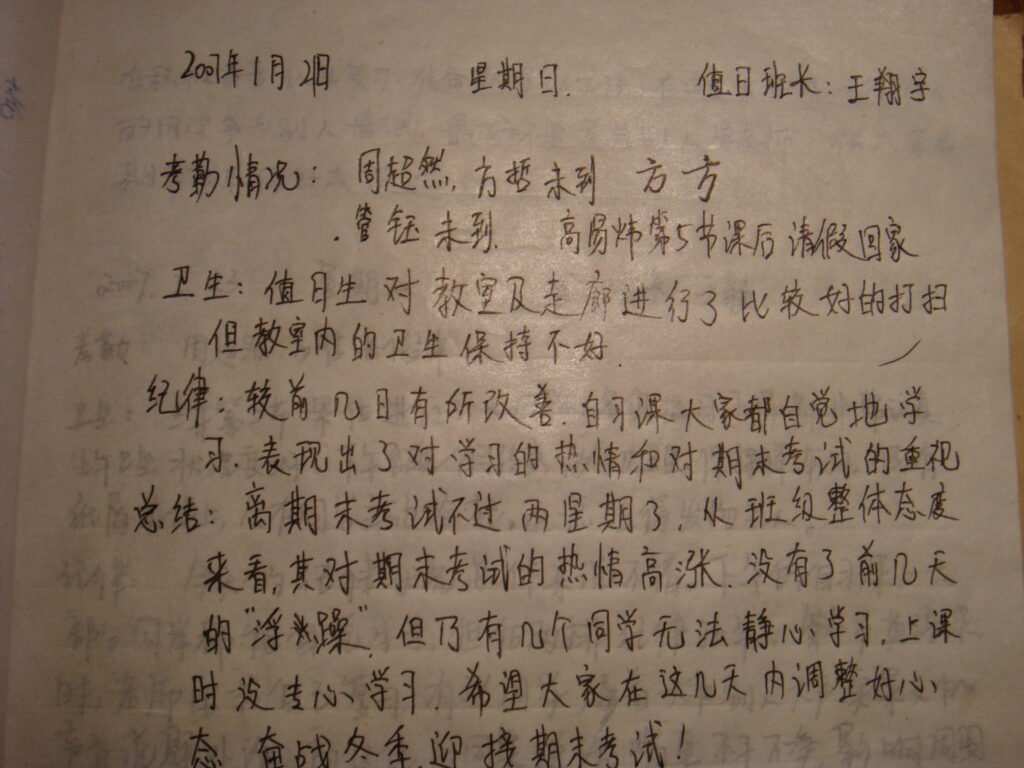 2007年1月21日 星期日. 值日班长:王翔宇
考勤情况:周超然,方哲未到 方方
管钰未到. 高易炜第5节课后请假回家
卫生:值日生对教室及走廊进行了比较好的打扫
但教室内的卫生保持不好.
纪律:较前几日有所改善.自习课大家都自觉地学
习.表现出了对学习的热情和对期末考试的重视
总结:离期末考试不过两星期了,从班级整体态度
来看,其对期末考试的热情高涨.没有了前几天
的“浮躁”.但乃有几个同学无法静心学习.上课
时没专心学习.希望大家在这几天内调整好心
态.奋战冬季,迎接期末考试!